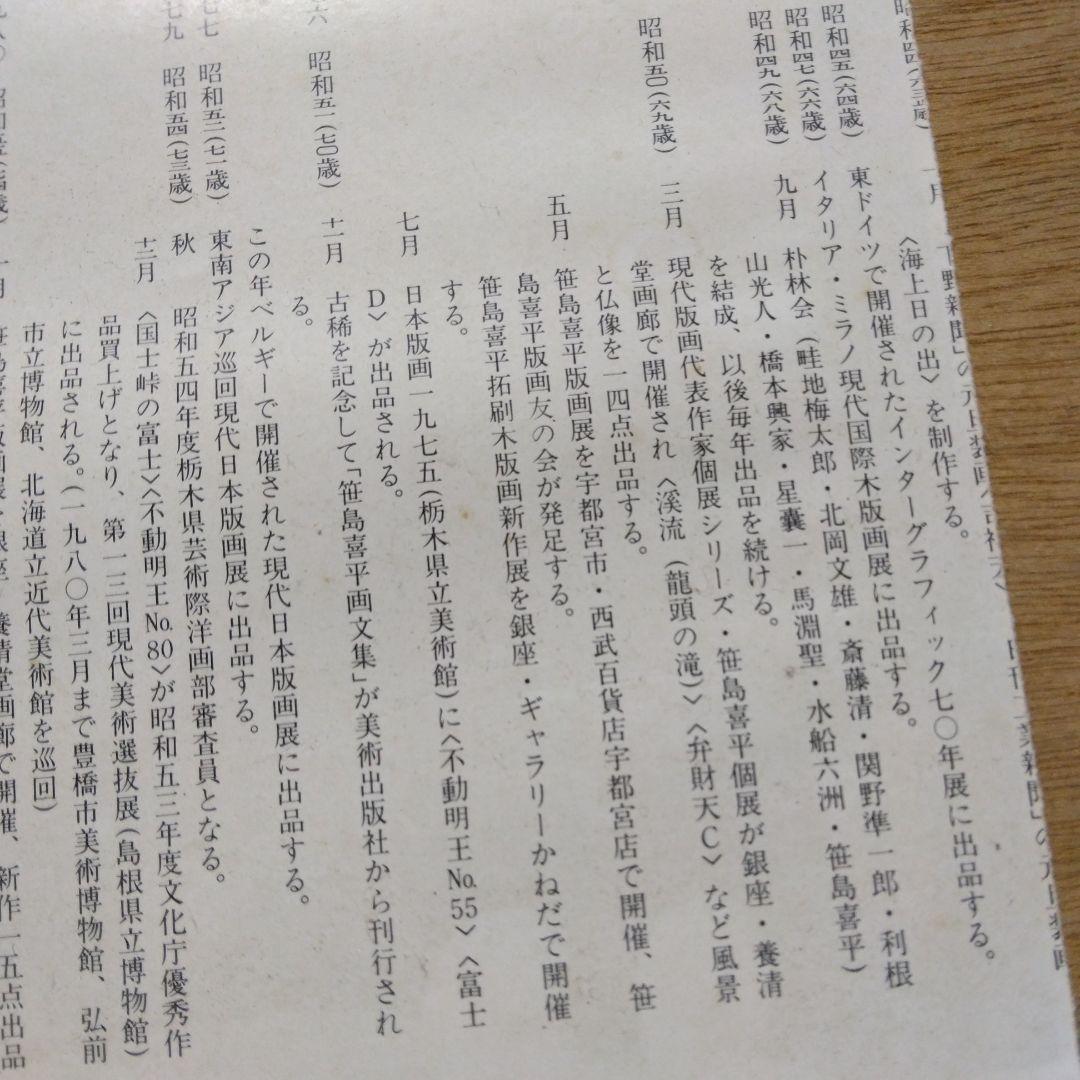 一月
〈海上日の出〉を制作する。
昭和四五(六四歳)
東ドイツで開催されたインターグラフィック七〇年展に出品する。
昭和四七(六六歳)
イタリア・ミラノ現代国際木版画展に出品する。
昭和四九(六八歳)
九月
朴林会(畦地梅太郎・北岡文雄・斎藤清・関野準一郎・利根
山光人・橋本興家・星襄一・馬淵聖・水船六洲・笹島喜平)
を結成、以後毎年出品を続ける。
昭和五〇(六九歳)
三月
現代版画代表作家個展シリーズ・笹島喜平個展が銀座・養清
堂画廊で開催され〈溪流(龍頭の滝)〉〈弁財天C〉など風景
と仏像を一四点出品する。
五月
笹島喜平版画展を宇都宮市・西武百貨店宇都宮店で開催、笹
島喜平版画友の会が発足する。
笹島喜平拓刷木版画新作展を銀座・ギャラリーかねだで開催
する。
七月
日本版画一九七五(栃木県立美術館)に〈不動明王No.55〉〈富士
D〉が出品される。
昭和五一(七〇歳)
十一月
古稀を記念して「笹島喜平画文集」が美術出版社から刊行され
る。
この年ベルギーで開催された現代日本版画展に出品する。
昭和五二(七一歳)
東南アジア巡回現代日本版画展に出品する。
七九
昭和五四(七三歳)
秋
昭和五四年度栃木県芸術際洋画部審査員となる。
十二月
〈国士峠の富士〉〈不動明王No.80〉が昭和五三年度文化庁優秀作
品買上げとなり、第一三回現代美術選抜展(島根県立博物館)
に出品される。(一九八〇年三月まで豊橋市美術博物館、弘前
市立博物館、北海道立近代美術館を巡回)
養清堂画廊で開催、新作一五点出品